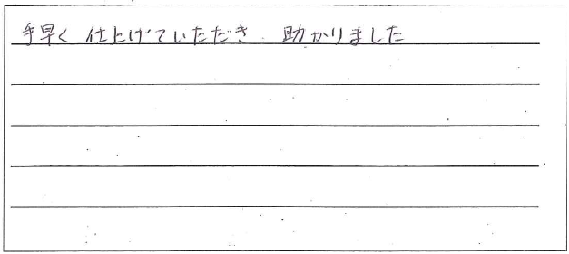 手早く 仕上げていただき 助かりました